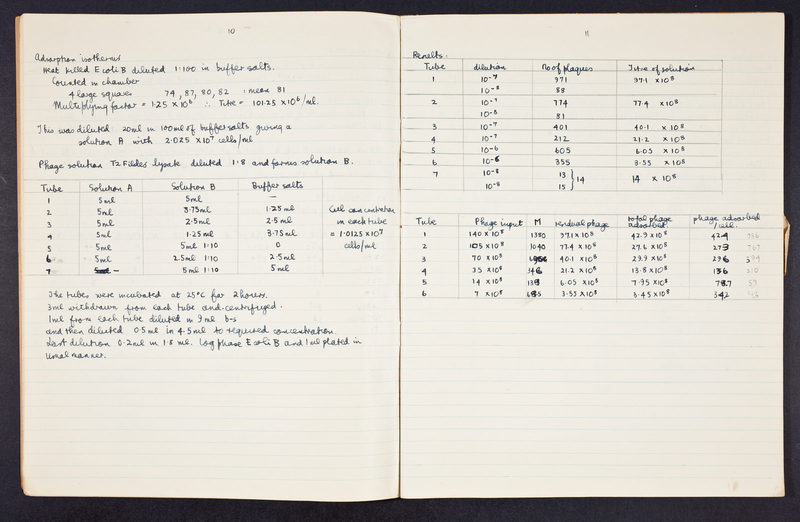 10
Adsorption isotherms
Heat killed E coli B diluted 1:100 in buffer salts.
Counted in chamber
4 large squares 74, 87, 80, 82 : mean 81
Multiplying factor = 1.25 × 10⁶ ∴ Titre = 101.25 × 10⁶/ml.
This was diluted 20ml in 100ml of buffer salts giving a
solution A with 2.025 × 10⁷ cells/ml
Phage solution T2 Fildes lysate diluted 1:8 and forms solution B.
Tube Solution A Solution B Buffer salts
1 5ml 5ml —
2 5ml 3.75ml 1.25 ml Cell concentration
3 5ml 2.5ml 2.5 ml in each tube
4 5ml 1.25 ml 3.75 ml = 1.0125 × 10⁷
5 5ml 5ml 1:10 0 cells/ml
6 5ml 2.5ml 1:10 2.5 ml
7 — 5ml 1:10 5ml
The tubes were incubated at 25°C for 2 hours.
3ml withdrawn from each tube and centrifuged.
1ml from each tube diluted in 9ml b-s
and then diluted 0.5ml in 4.5ml to required concentration.
Last dilution 0.2ml in 1.8 ml. Log phase E coli B and 1ml plated in
usual manner.
11
Results:
Tube dilution No of plaques Titre of solution
1 10⁻⁷ 971 97.1 × 10⁸
10⁻⁸ 88
2 10⁻⁷ 774 77.4 × 10⁸
10⁻⁸ 81
3 10⁻⁷ 401 40.1 × 10⁸
4 10⁻⁷ 212 21.2 × 10⁸
5 10⁻⁶ 605 6.05 × 10⁸
6 10⁻⁶ 355 3.55 × 10⁸
7 10⁻⁸ 13 } 14 14 × 10⁸
10⁻⁸ 15
Tube Phage input M residual phage total phage adsorbed. phage adsorbed /cell.
1 140 × 10⁸ 1380 97.1 × 10⁸ 42.9 × 10⁸
2 105 × 10⁸ 1040 77.4 × 10⁸ 27.6 × 10⁸ 273
3 70 × 10⁸ 40.1 × 10⁸ 29.9 × 10⁸ 296
4 35 × 10⁸ 346 21.2 × 10⁸ 13.8 × 10⁸ 136
5 14 × 10⁸ 138 6.05 × 10⁸ 7.95 × 10⁸ 78.7
6 7 × 10⁸ 3.55 × 10⁸ 3.45 × 10⁸ 342